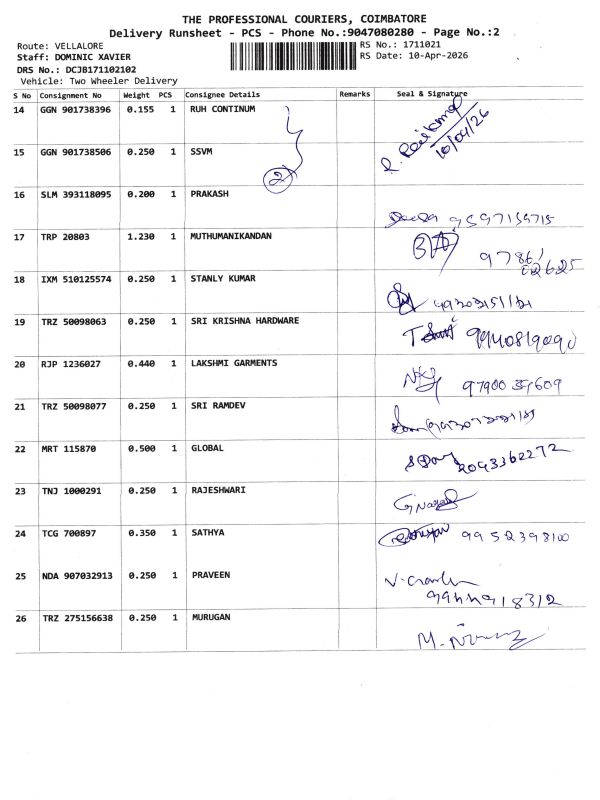 THE PROFESSIONAL COURIERS, COIMBATORE
Delivery Runsheet - PCS - Phone No.:9047080280 - Page No.:2
Route: VELLALORE
RS No.: 1711021
Staff: DOMINIC XAVIER
RS Date: 10-Apr-2026
DRS No.: DCJB171102102
Vehicle: Two Wheeler Delivery
S No Consignment No Weight PCS Consignee Details Remarks Seal & Signature
14 GGN 901738396 0.155 1 RUH CONTINUM
10/04/26
15 GGN 901738506 0.250 1 SSVM
2
16 SLM 393118095 0.200 1 PRAKASH
9597159715
17 TRP 20803 1.230 1 MUTHUMANIKANDAN
18 IXM 510125574 0.250 1 STANLY KUMAR
19 TRZ 50098063 0.250 1 SRI KRISHNA HARDWARE
20 RJP 1236027 0.440 1 LAKSHMI GARMENTS
21 TRZ 50098077 0.250 1 SRI RAMDEV
22 MRT 115870 0.500 1 GLOBAL
23 TNJ 1000291 0.250 1 RAJESHWARI
24 TCG 700897 0.350 1 SATHYA
9952398100
25 NDA 907032913 0.250 1 PRAVEEN
26 TRZ 275156638 0.250 1 MURUGAN